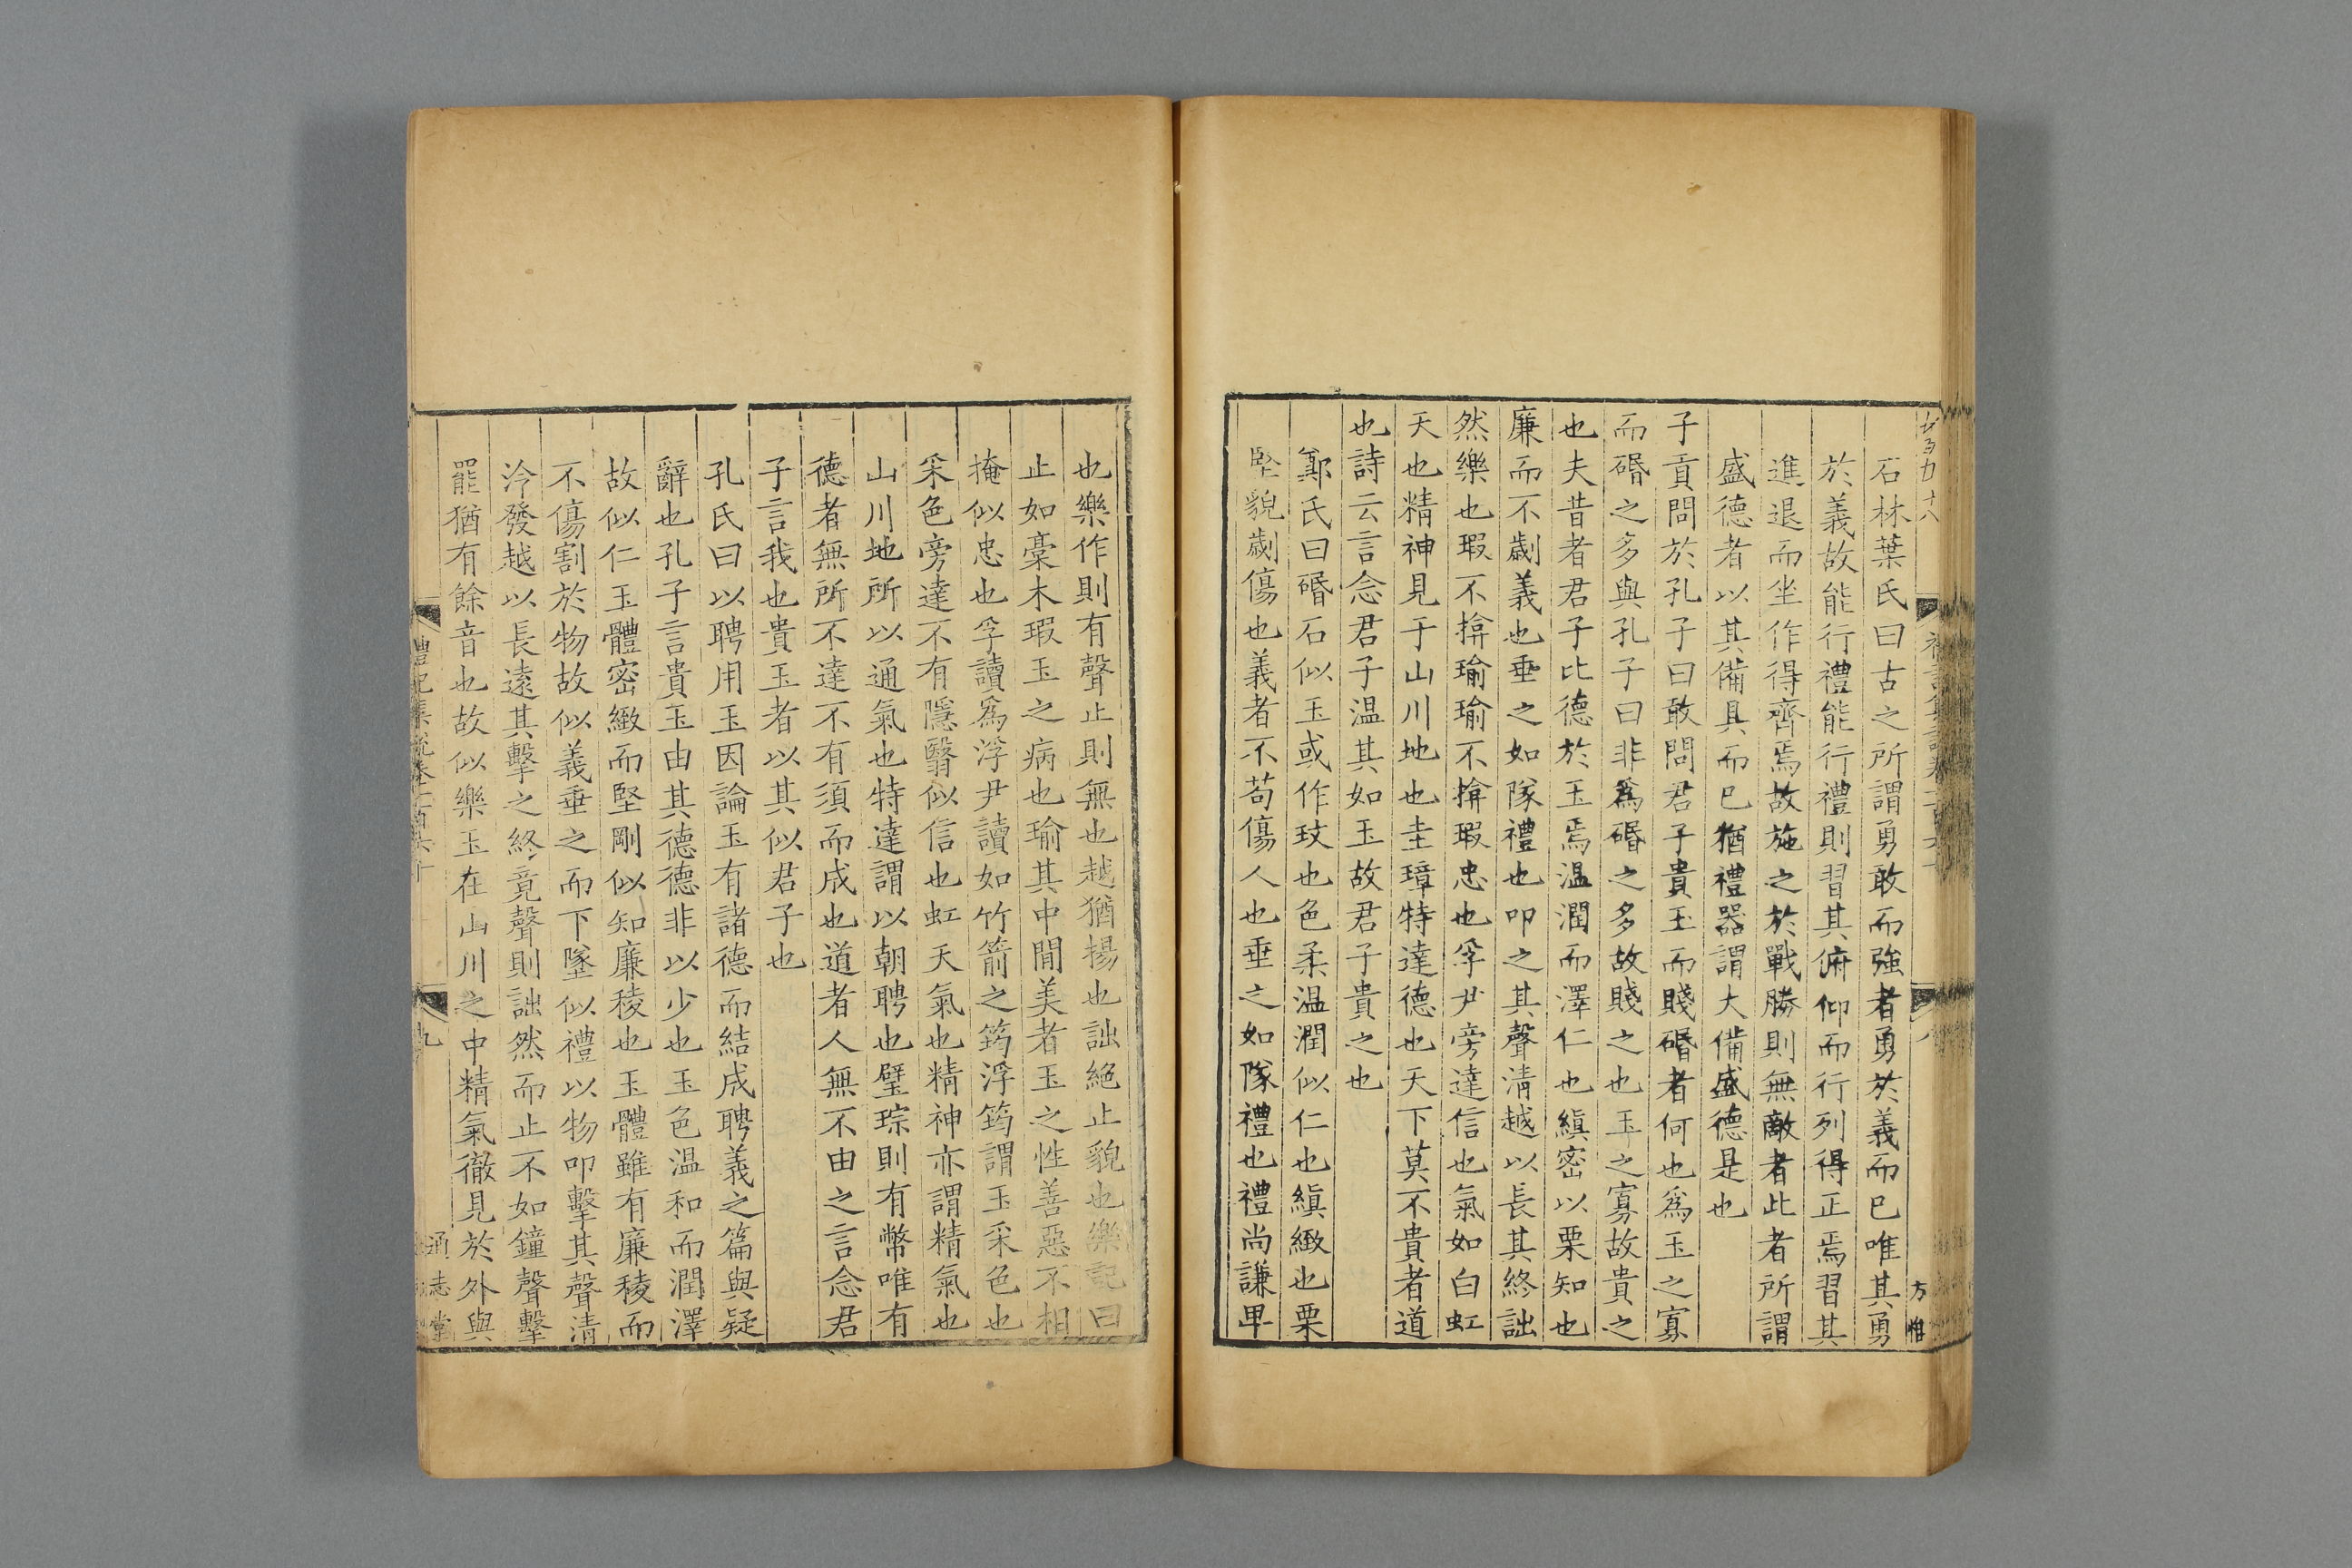 石林葉氏曰古之所謂勇敢而強者勇於義而已唯其勇
於義故能行禮能行禮則習其俯仰而行列得正焉習其
進退而坐作得齊焉故施之於戰勝則無敵者此者所謂
盛德者以其備具而已猶禮器謂大備盛德是也
子貢問於孔子曰敢問君子貴玉而賤碈者何也爲玉之寡
而碈之多與孔子曰非爲碈之多故賤之也玉之寡故貴之
也夫昔者君子比德於玉焉温潤而澤仁也縝密以栗知也
廉而不劌義也垂之如隊禮也叩之其聲清越以長其終詘
然樂也瑕不揜瑜瑜不揜瑕忠也孚尹旁達信也氣如白虹
天也精神見于山川地也圭璋特達德也天下莫不貴者道
也詩云言念君子温其如玉故君子貴之也
鄭氏曰碈石似玉或作玟也色柔温潤似仁也縝緻也栗
堅貌劌傷也義者不苟傷人也垂之如隊禮也禮尚謙卑
也樂作則有聲止則無也越猶揚也詘絕止貌也樂記曰
止如槀木瑕玉之病也瑜其中間美者玉之性善惡不相
掩似忠也孚讀爲浮尹讀如竹箭之筠浮筠謂玉采色也
采色旁達不有隱翳似信也虹天氣也精神亦謂精氣也
山川地所以通氣也特達謂以朝聘也璧琮則有幣唯有
德者無所不達不有須而成也道者人無不由之言念君
子言我也貴玉者以其似君子也
孔氏曰以聘用玉因論玉有諸德而結成聘義之篇與疑
辭也孔子言貴玉由其德德非以少也玉色温和而潤澤
故似仁玉體密緻而堅剛似知廉稜也玉體雖有廉稜而
不傷割於物故似義垂之而下墜似禮以物叩擊其聲清
泠發越以長遠其擊之終竟聲則詘然而止不如鐘聲擊
罷猶有餘音也故似樂玉在山川之中精氣徹見於外與
九
通志堂